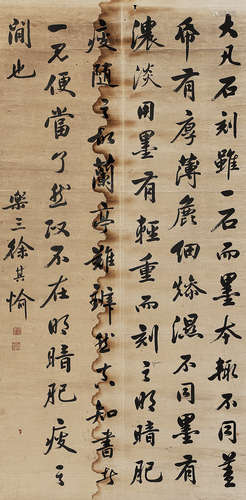 大凡石刻雖一石而墨夲輒不同蓋
帋有厚薄麁細燥濕不同墨有
濃淡用墨有輕重而刻之明暗肥
瘦隨之故蘭亭難辨然真知書者
一見便當了然政不在明暗肥瘦之
間也
樂三徐其愉